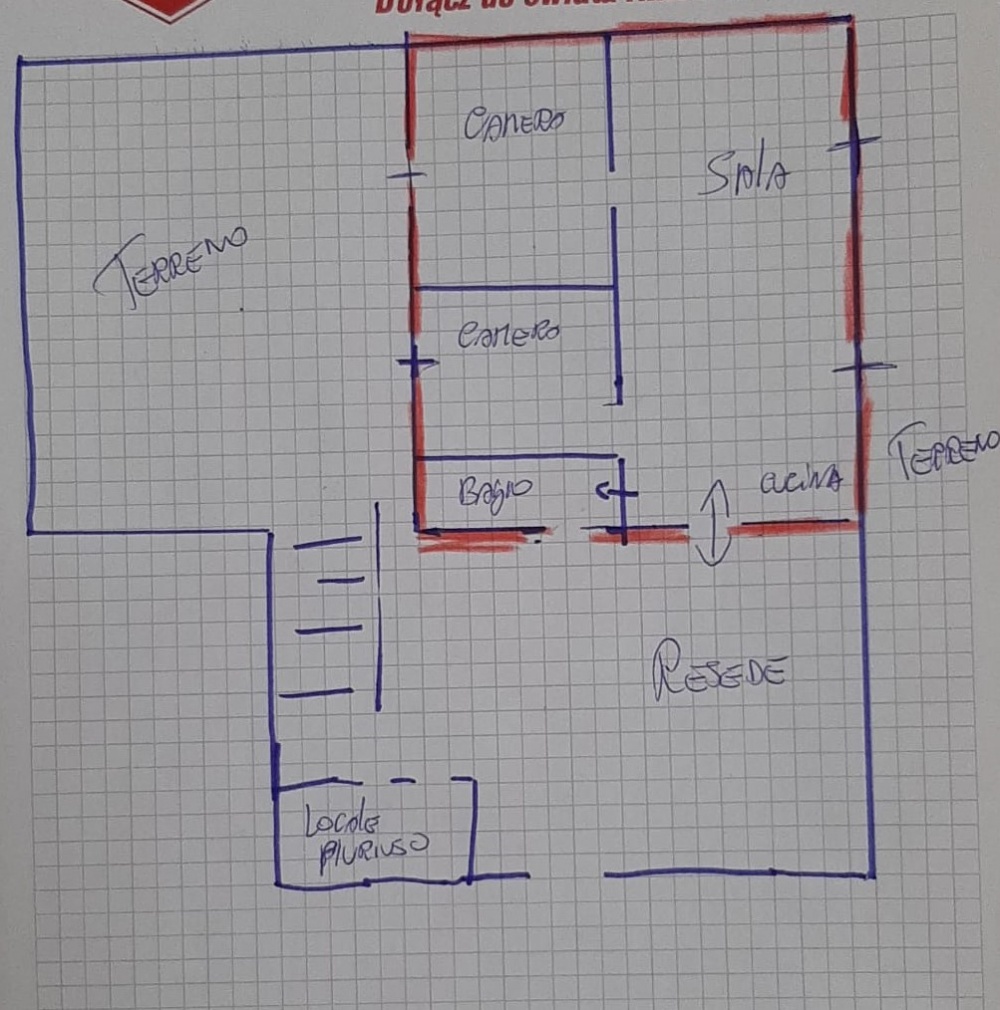 Dołącz do świata
CAMERA
SALA
TERRENO
CAMERA
TERRENO
BAGNO
CUCINA
RESEDE
LOCALE
PLURIUSO